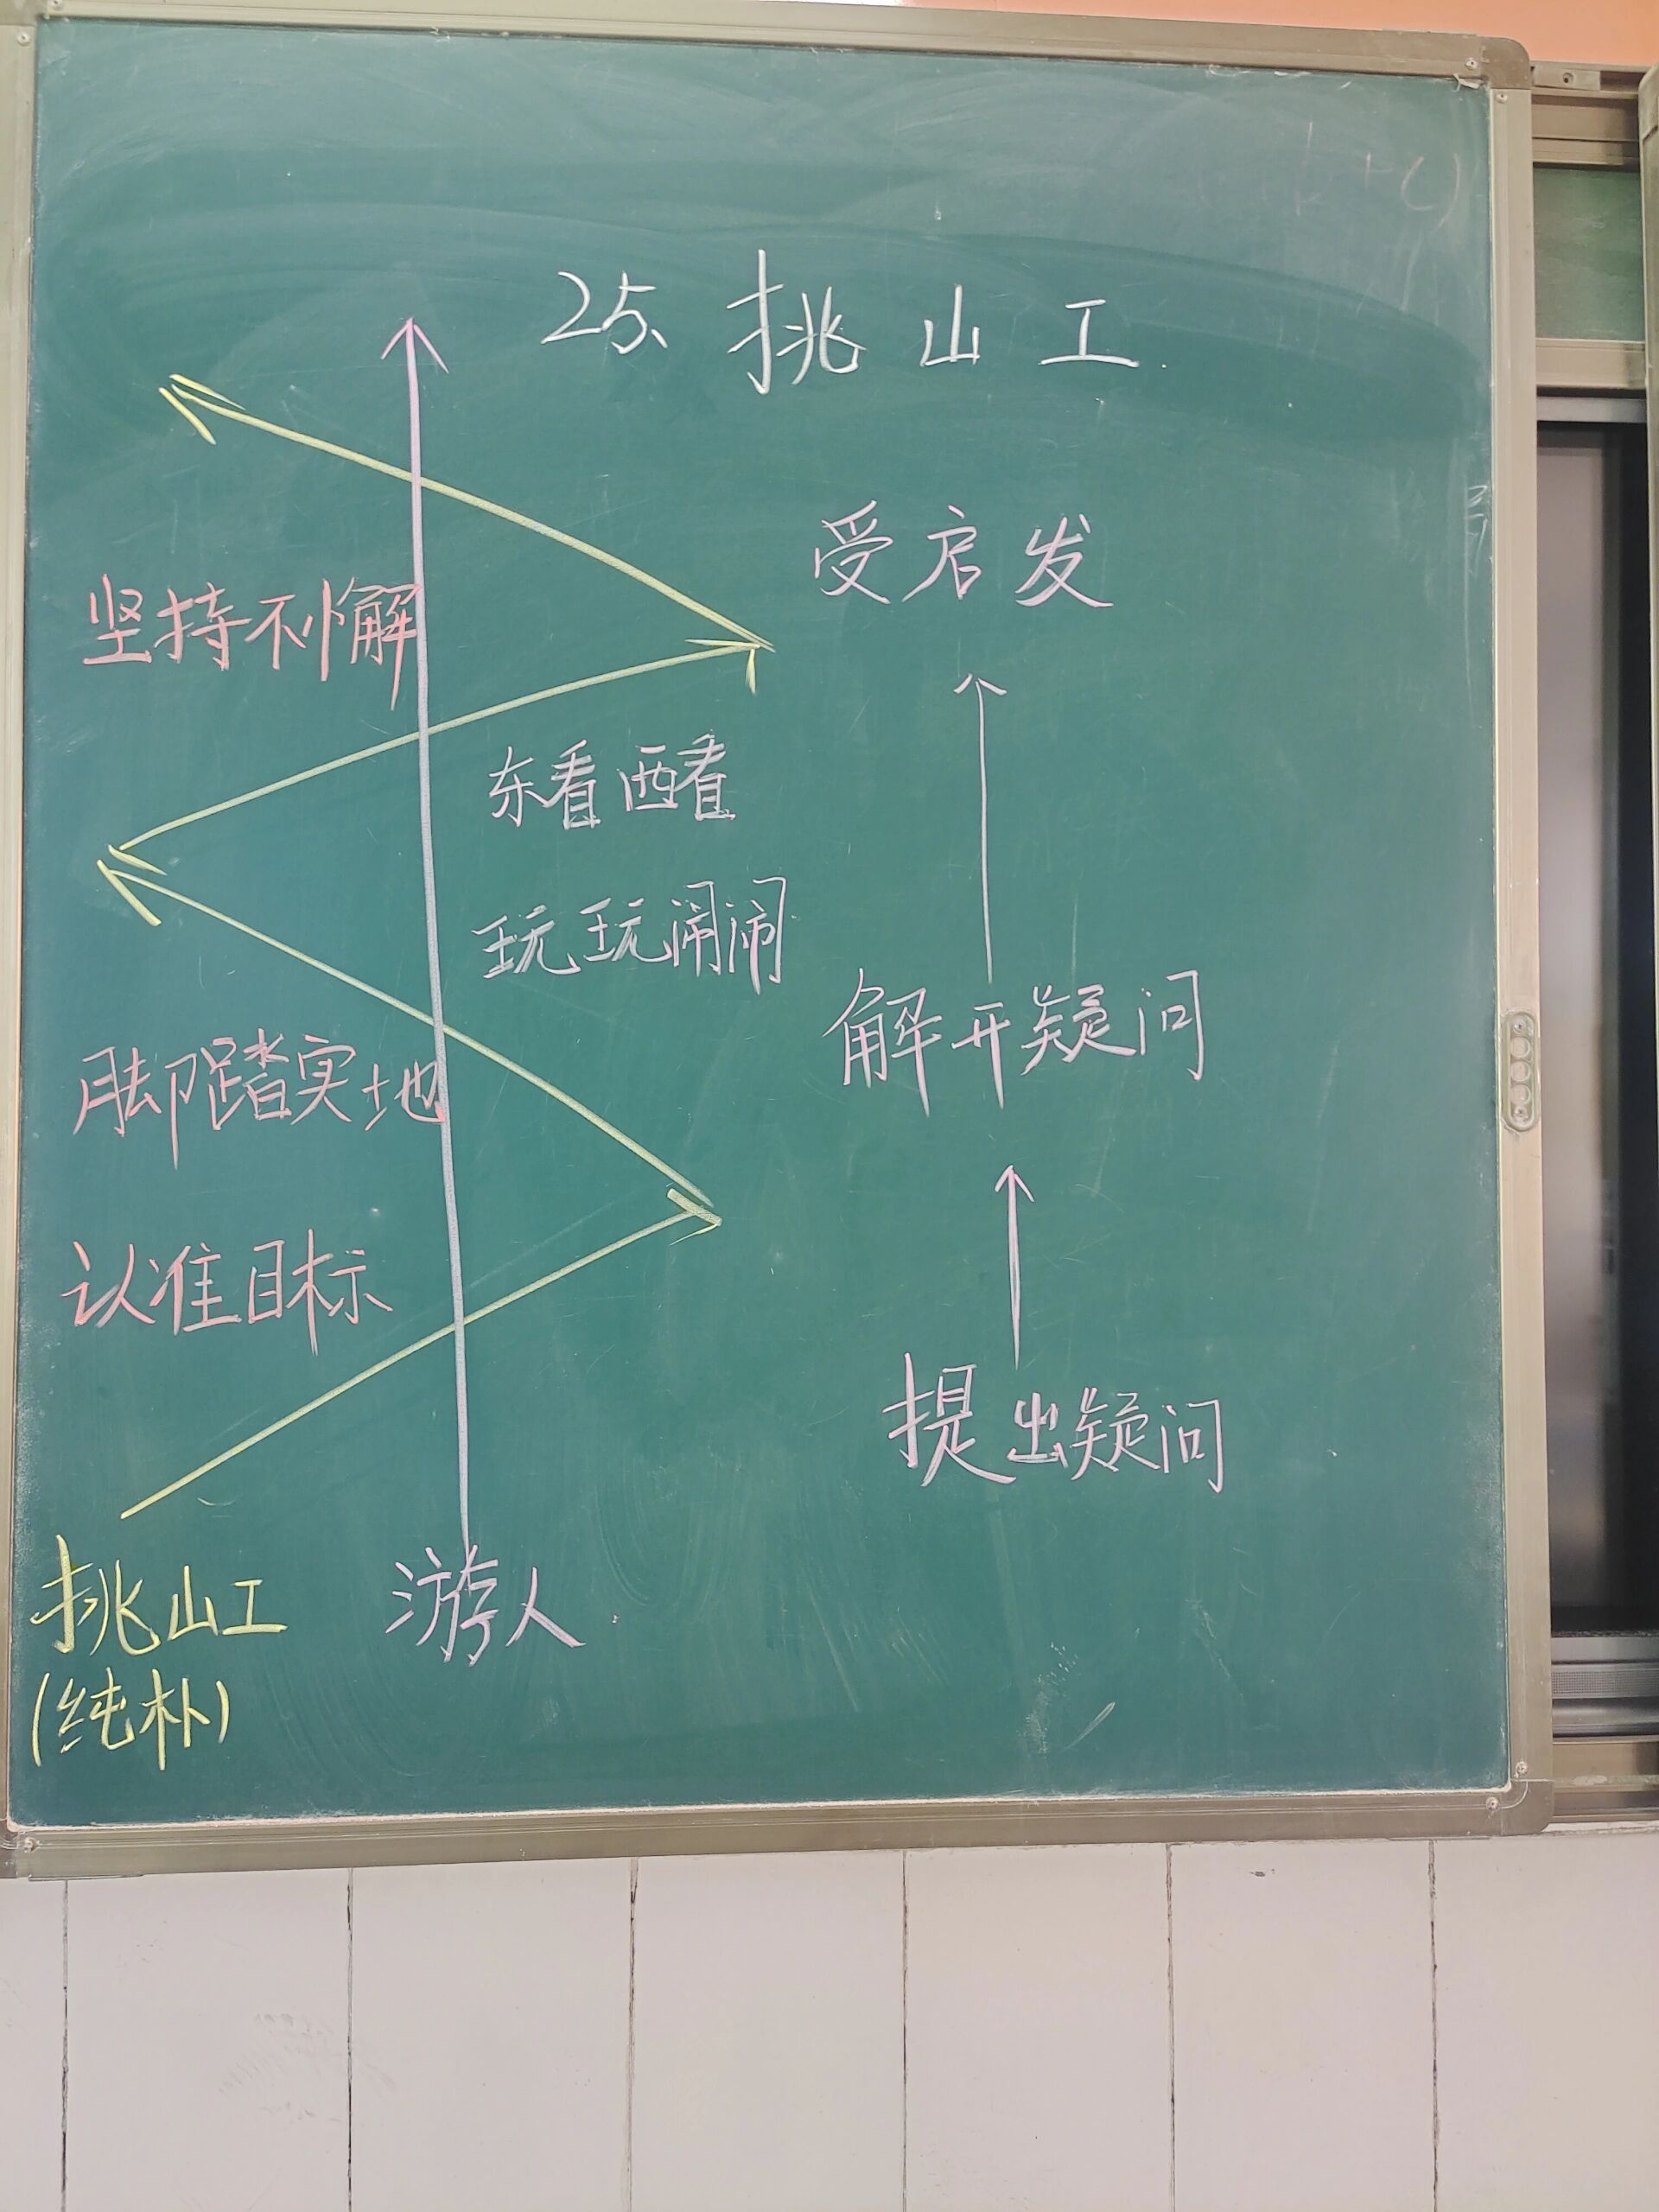 25、挑山工
受启发
坚持不懈
东看西看
玩玩闹闹
解开疑问
脚踏实地
认准目标
提出疑问
挑山工
游人
(纯朴)